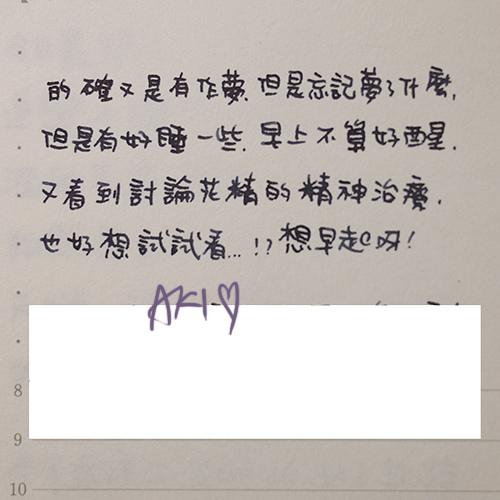 的確又是有作夢,但是忘記夢了什麼,
但是有好睡一些,早上不算好醒,
又看到討論花精的精神治療,
也好想試試看...!?想早起呀!
AKI♡
8
9
10